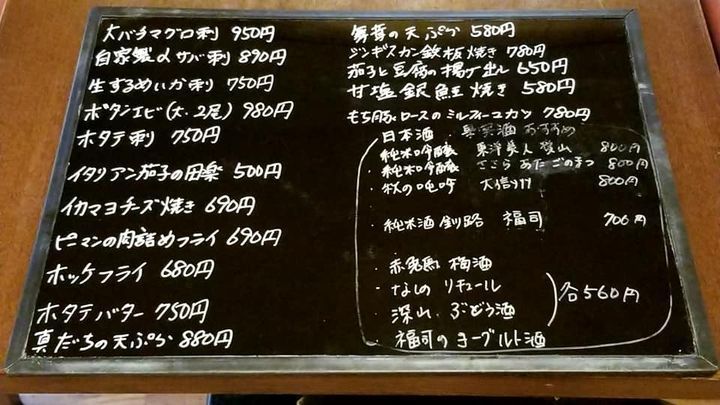 大バチマグロ刺 950円
自家製〆サバ刺 890円
生するめいか刺 750円
ボタンエビ(大・2尾) 980円
ホタテ刺 750円
イタリアン茄子の田楽 500円
イカマヨチーズ焼き 690円
ピーマンの肉詰めフライ 690円
ホッケフライ 680円
ホタテバター 750円
真だちの天ぷら 880円
舞茸の天ぷら 580円
ジンギスカン鉄板焼き 780円
茄子と豆腐の揚げ出し 650円
甘塩銀鮭焼き 580円
もち豚ロースのミルフィーユカツ 780円
日本酒 おすすめ
・純米吟醸 東洋美人 800円
・純米吟醸 あたごのまつ 800円
・秋の 大信州 800円
・純米酒 釧路 福司 700円
・赤兎馬 梅酒
・なしのリキュール
・深山 ぶどう酒
・福司のヨーグルト酒
各560円